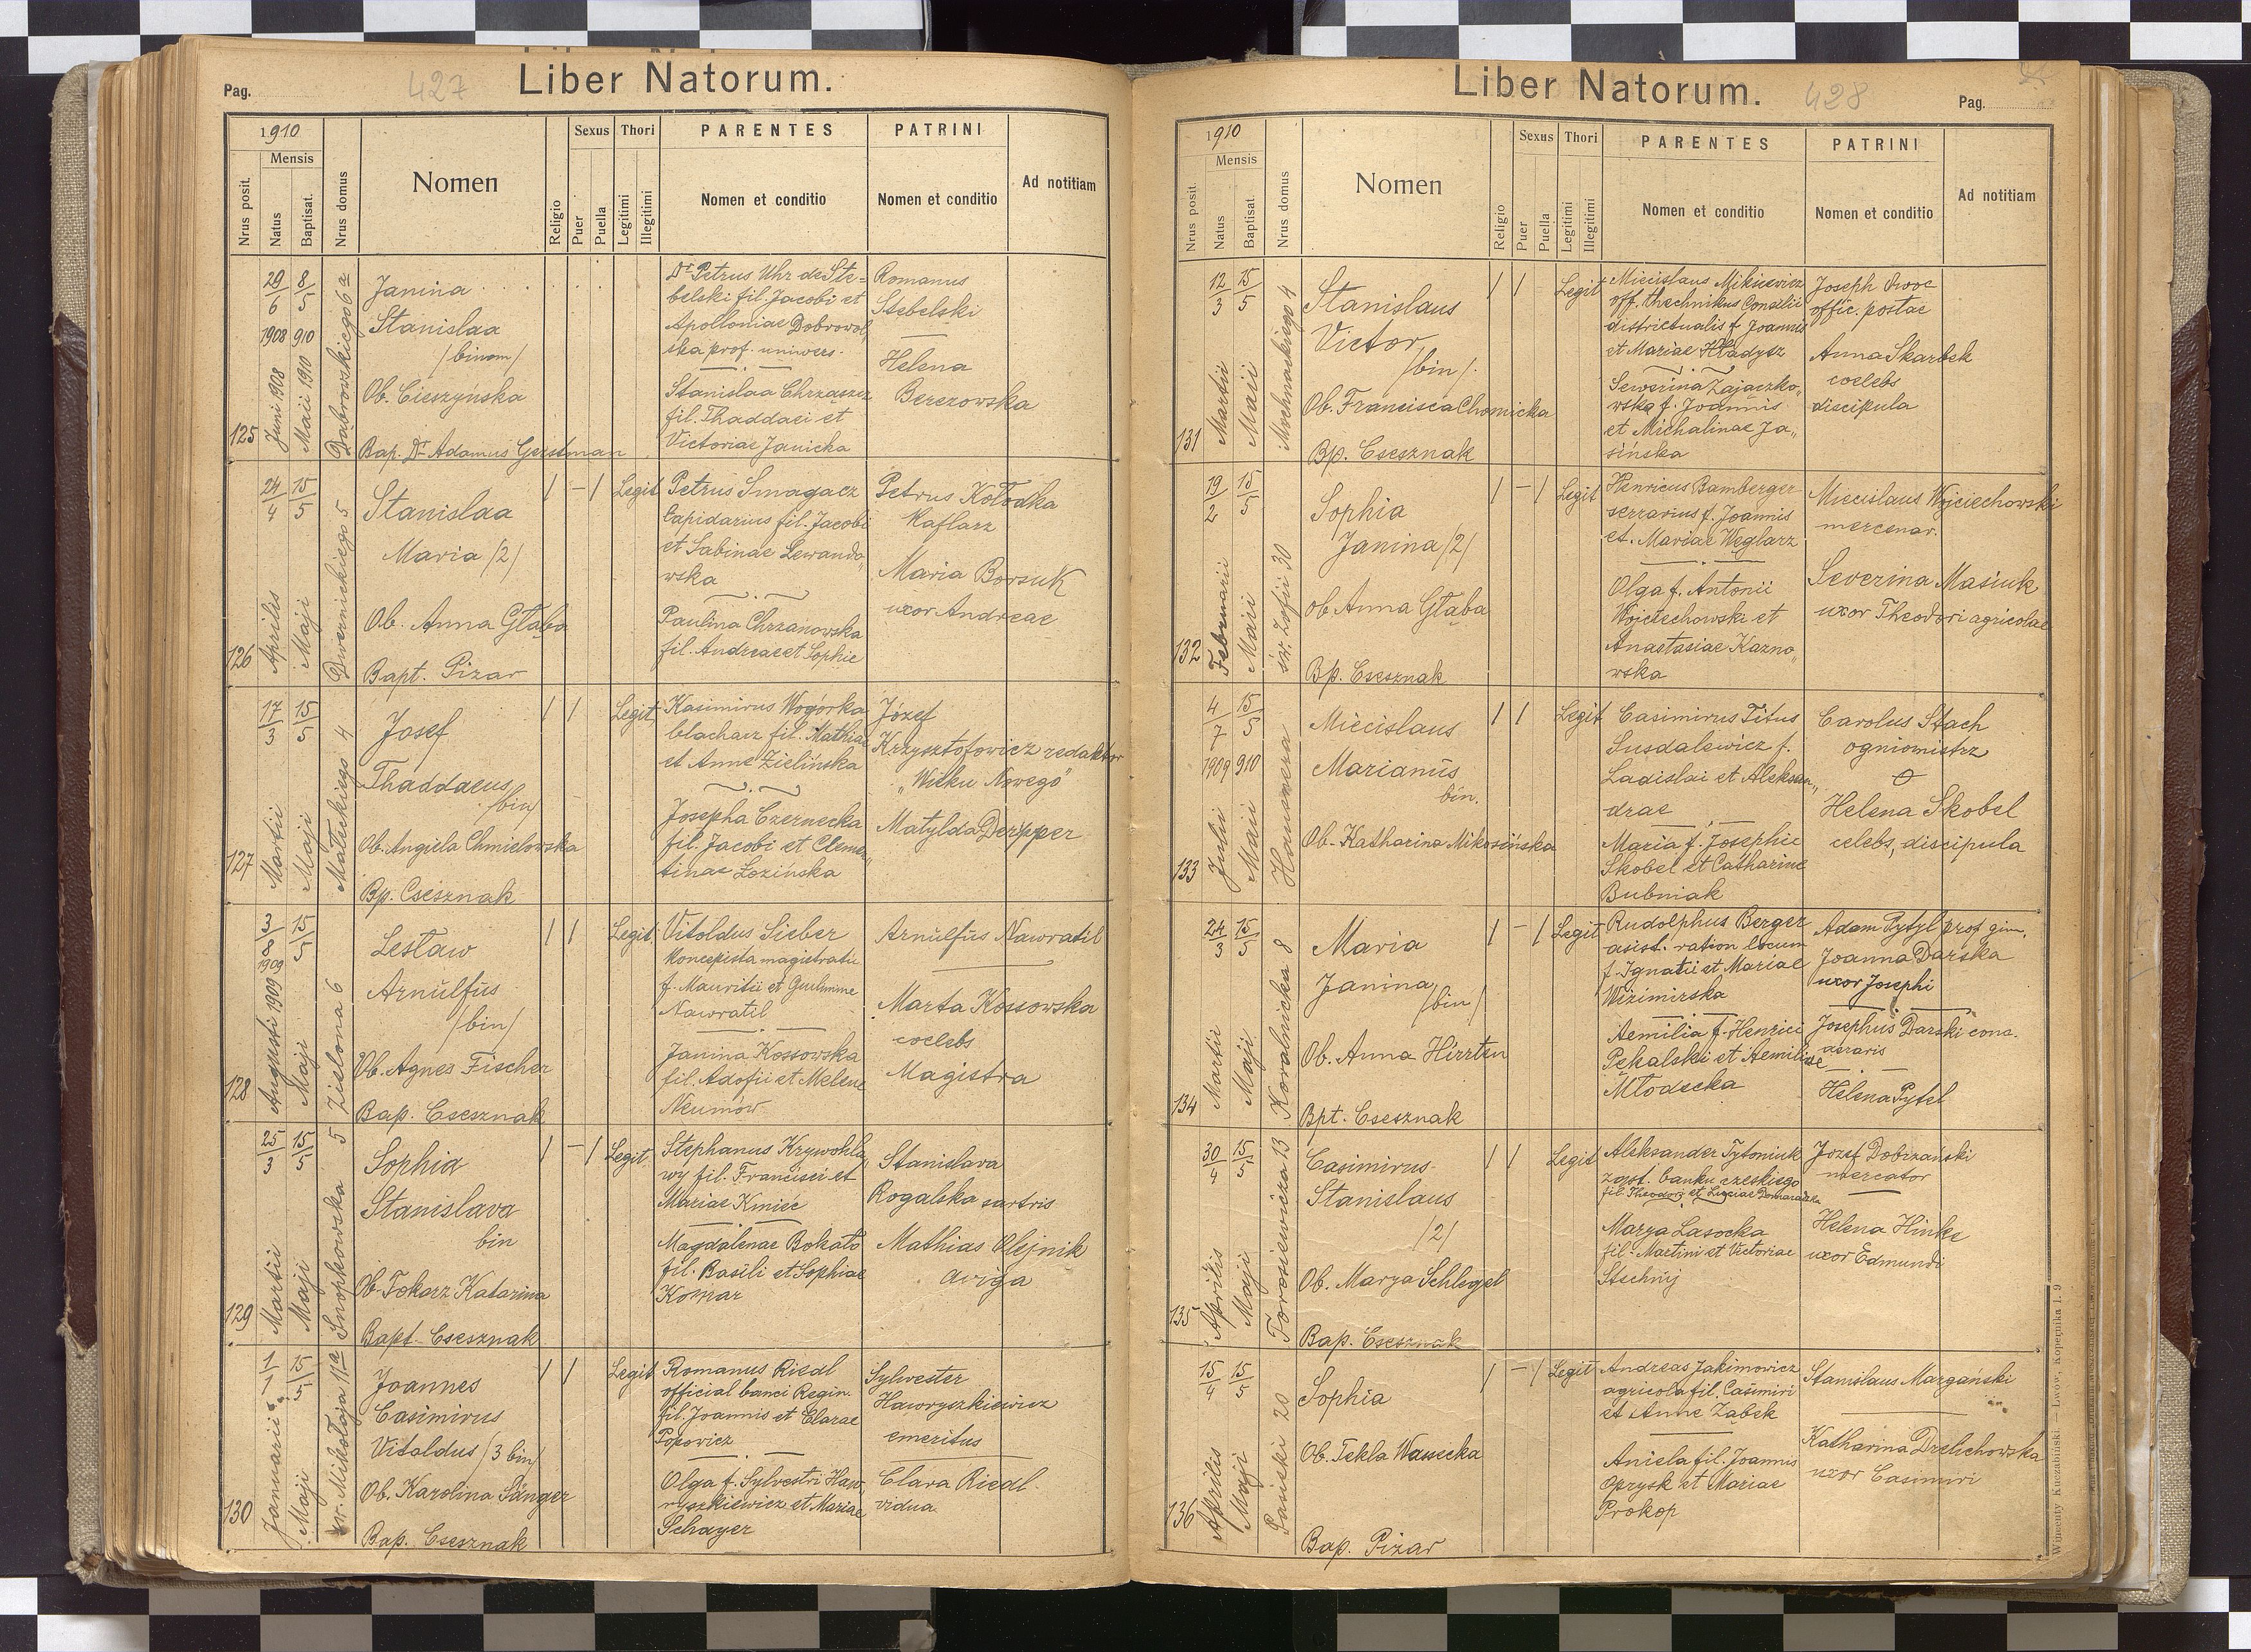 Pag.
427
Liber Natorum.
1910
Mensis
Nrus posit.
Natus
Baptisat.
Nrus domus
Nomen
Religio
Sexus
Puer
Puella
Thori
Legitimi
Illegitimi
PARENTES
Nomen et conditio
PATRINI
Nomen et conditio
Ad notitiam
125
29/6 1908
Juni 1908
8/5 910
Maii 1910
Dąbrowskiego 6a
Janina
Stanislaa
/binom/
Ob. Cieszyńska
Bap. Dr Adamus Gerstman
Dr Petrus Uhr de Ste=
belski fil. Jacobi et
Apolloniae Dobrowol
ska prof. univers.
Stanislaa Chrząszcz
fil. Thaddaei et
Victoriae Janicka
Romanus
Stebelski
Helena
Berezowska
126
24/4
Aprilis
15/5
Maji
Dwernickiego 5
Stanislaa
Maria /2/
Ob. Anna Głąba
Bapt. Pizar
Legit
Petrus Smagacz
Lapidarius fil. Jacobi
et Sabinae Lewando„
wska
Paulina Chrzanowska
fil. Andreae et Sophie
Petrus Kołodka
Kaflarz
Maria Borsuk
uxor Andreae
127
17/3
Martii
15/5
Maji
Małeckiego 4
Josef
Thaddaeus
/bin/
Ob. Angiela Chmielowska
Bp. Csesznak
Legit
Kasimirus Wogórka
blacharz fil. Mathiae
et Anne Zielinska
Josepha Czernecka
fil. Jacobi et Clemen„
tinae Łozińska
Józef
Krzysztofowicz redaktor
„Wieku Nowego"
Matylda Derpper
128
3/8 1909
Augusti 1909
15/5
Maji
Zielona 6
Lesław
Arnulfus
/bin/
Ob. Agnes Fischer
Bap. Csesznak
Legit.
Vitoldus Sieber
Koncepista magistratu
f. Mauritii et
Nawratil
Janina Kossowska
fil. Adofii et Melene
Neumów
Arnulfus Nawratil
Marta Kossowska
coelebs
Magistra
129
25/3
Martii
15/5
Maji
Snopkowska 5
Sophia
Stanislava
bin
Ob. Tokarz Katarina
Bapt. Csesznak
Legit.
Stephanus Krywohla
wy fil. Francisci et
Mariae Kmieć
Magdalenae Bokato
fil. Basili et Sophiae
Komar
Stanislava
Rogalska sartris
Mathias Olejnik
avriga
130
1/1
Januarii
15/5
Maji
św. Mikołaja 11a
Joannes
Casimirus
Vitoldus /3 bin/
Ob. Karolina Sänger
Bap. Csesznak
Legit
Romanus Riedl
official banci Regin.
fil. Joannis et Clarae
Popowicz
Olga f. Sylvestri Haw„
ryszkiewicz et Mariae
Schayer
Sylwester
Haworyszkiewicz
emeritus
Clara Riedl
vidua
Liber Natorum.
428
Pag.
1910
Mensis
Nrus posit.
Natus
Baptisat.
Nrus domus
Nomen
Religio
Sexus
Puer
Puella
Thori
Legitimi
Illegitimi
PARENTES
Nomen et conditio
PATRINI
Nomen et conditio
Ad notitiam
131
12/3
Martii
15/5
Maii
Mochnackiego 4
Stanislaus
Victor
/bin/.
Ob. Francisca Chomicka
Bp. Csesznak
Legit
Miecislaus Miksiewicz
off. thechnikus Consilii
districtualis f. Joannis
et Mariae Hładysz
Sewerina Zajaczko„
wska f. Joannis
et Michalinae Ja„
sińska
Joseph
offic. postae
Anna Skarbek
coelebs
discipula
132
19/2
Februarii
15/5
Maii
św. Zofii 30
Sophia
Janina /2/
ob Anna Głąba
Bp. Csesznak
Legit
Henricus Bamberger
serrarius f. Joannis
et. Mariae Węglarz
Olga f. Antonii
Wojciechowski et
Anastasiae Kazno„
wska
Miecislaus Wojciechowski
mercenar.
Severina Masiuk
uxor Theodori agricolae
133
4/7 1909
Julii
15/5 910
Maii
Hausnera
Miecislaus
Marianus
bin.
Ob. Katharina Mikosińska
Legit
Casimirus Titus
Susdalewicz f.
Ladislai et Aleksan„
drae
Maria f. Josephie
Skobel et Catharine
Bubniak
Carolus Stach
ogniomistrz
Helena Skobel
celebs, discipula
134
24/3
Martii
15/5
Maji
Koralnicka 8
Maria
Janina
/bin/
Ob. Anna Hirrten
Bpt. Csesznak
Legit
Rudolphus Berger
asist. ration locum
f. Ignatii et Mariae
Wizimirska
Aemilia f. Henrici
Pękalski et Aemiliae
Młodecka
Adam Pytyl prof gim.
Joanna Darska
uxor Josephi
Josephus Darski cons.
aeraris
Helena Pytel
135
30/4
Aprilis
15/5
Maji
Torosiewicza 13
Casimirus
Stanislaus
/2/
Ob. Marya Schlegel
Bap. Csesznak
Legit
Aleksander Tytoniuk
zast. banku czeskiego
fil. Theodori et Luciae Domaradzka
Marya Lasocka
fil. Martini et Victoriae
Stechnij
Jozef Dobrzański
mercator
Helena Hinke
uxor Edmundi
136
15/4
Aprilis
15/5
Maji
Pasieki 20
Sophia
Ob. Tekla Wanecka
Bap. Pizar
Legit
Andreas Jakimowicz
agricola fil. Casimiri
et Anne Ząbek
Aniela fil. Joannis
Oprysk et Mariae
Prokop
Stanislaus Margański
Katharina Drelichowska
uxor Casimiri
Wincenty Kuczabiński — Lwów, Kopernika l. 9